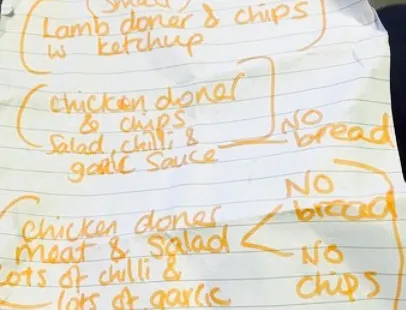 (small)
Lamb doner & chips
w ketchup
chicken doner
& chips
Salad, chilli &
garlic sauce
NO
bread
chicken doner
meat & Salad
Lots of chilli &
lots of garlic
NO
bread
NO
chips